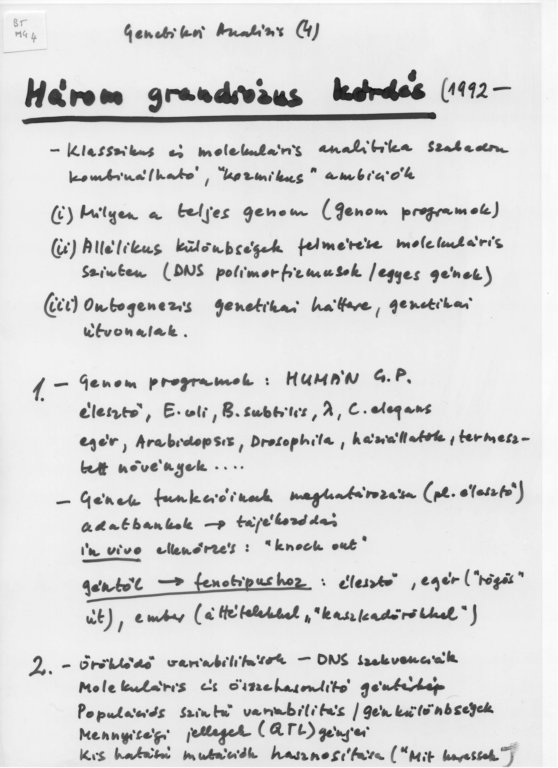 BT
MG 4
Genetikai Analízis (4)
Három grandiózus kérdés (1992 —
- Klasszikus és molekuláris analitika szabadon
kombinálható, "kozmikus" ambíciók
(i) Milyen a teljes genom (genom programok)
(ii) Allélikus különbségek felmérése molekuláris
szinten (DNS polimorfizmusok / egyes gének)
(iii) Ontogenezis genetikai háttere, genetikai
útvonalak.
1. - Genom programok : HUMÁN G.P.
élesztő, E. coli, B. subtilis, λ, C. elegans
egér, Arabidopsis, Drosophila, háziállatok, termesz-
tett növények ....
- Gének funkcióinak meghatározása (pl. élesztő)
adatbankok → tájékozódás
in vivo ellenőrzés : "knock out"
géntől → fenotípushoz : élesztő, egér ("rögös"
út), ember (áttételekkel, "kaszkadőrökkel")
2. - Öröklődő variabilitások - DNS szekvenciák
Molekuláris és összehasonlító géntérkép
Populációs szintű variabilitás / génkülönbségek
Mennyiségi jellegek (QTL) génjei
Kis hatású mutációk hasznosítása ("Mit keressek")